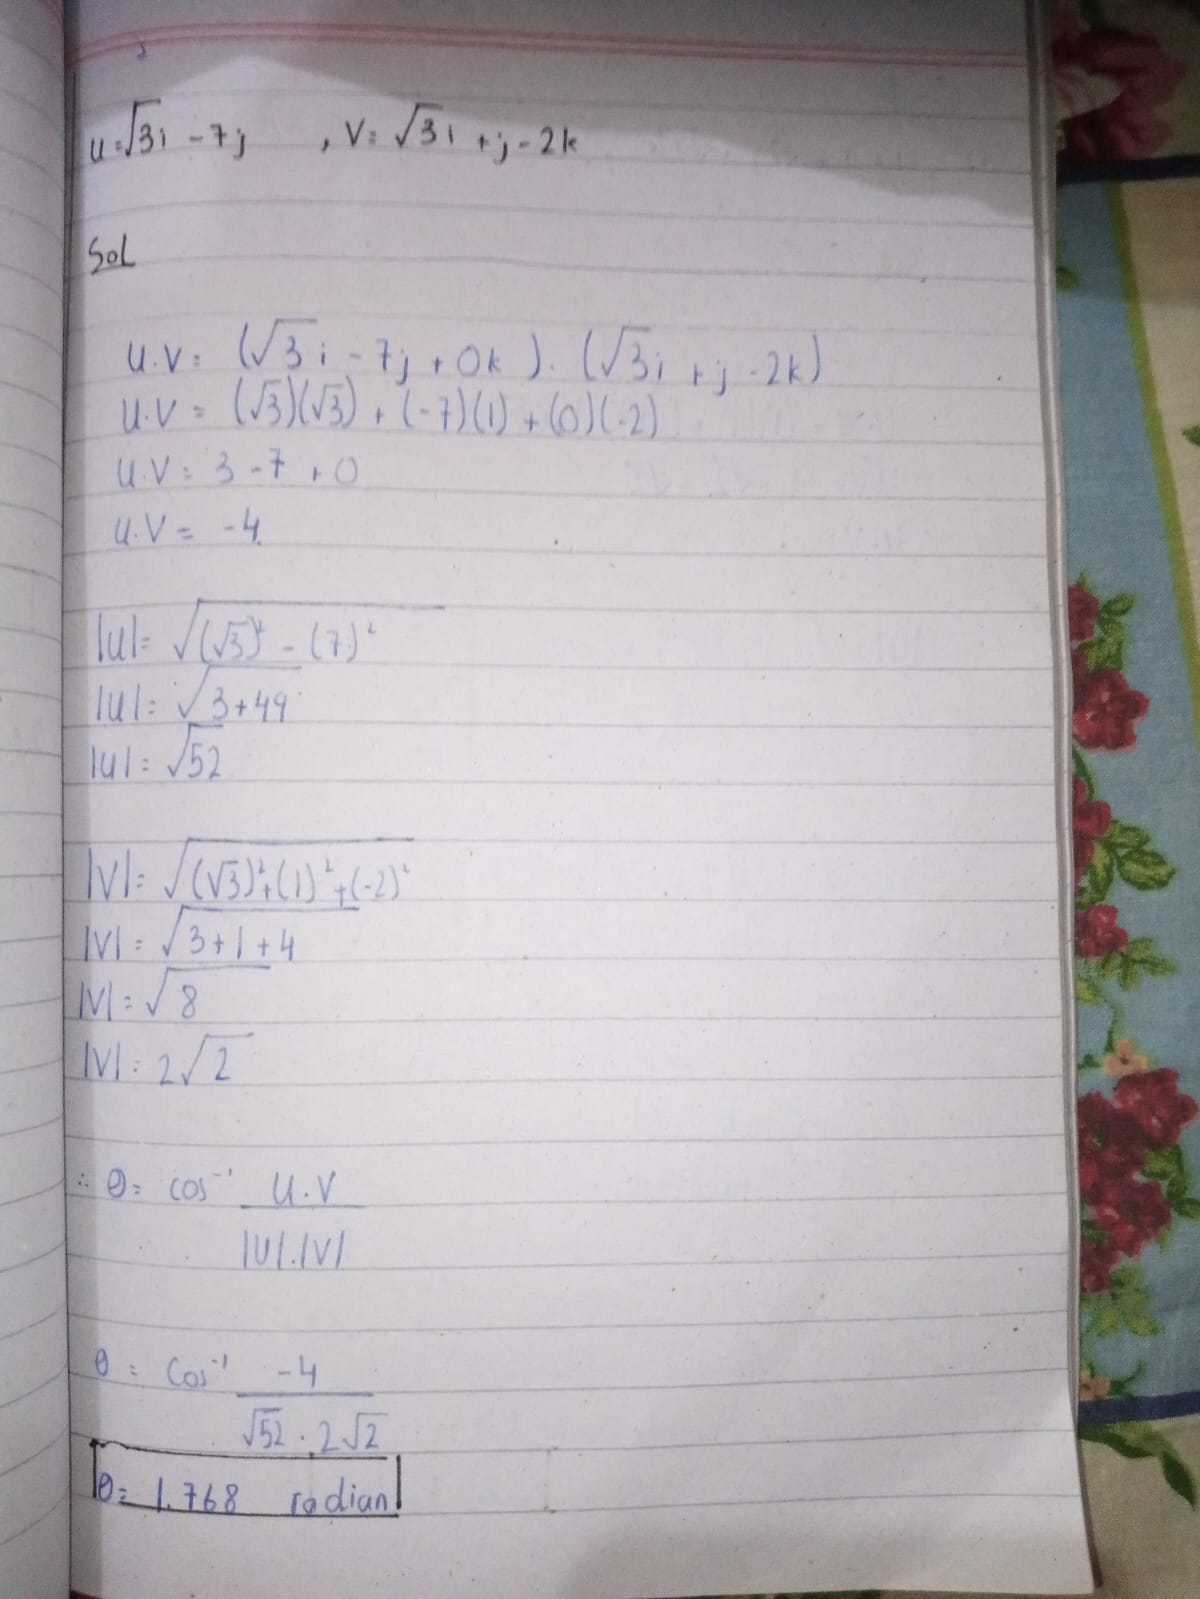 u=√3i -7j , V= √3i +j-2k
Sol
u.v= (√3i - 7j + 0k ). (√3i +j -2k)
u.v = (√3)(√3) + (-7)(1) + (0)(-2)
u.v = 3 -7 + 0
u.v = -4
|u|= √(√3)² - (7)²
|u|= √3+49
|u|= √52
|v|= √(√3)²+(1)²+(-2)²
|v| = √3+1+4
|v| = √8
|v| = 2√2
∴ θ= cos⁻¹ u.v
|u|.|v|
θ = cos⁻¹ -4
√52 . 2√2
θ= 1.768 radian